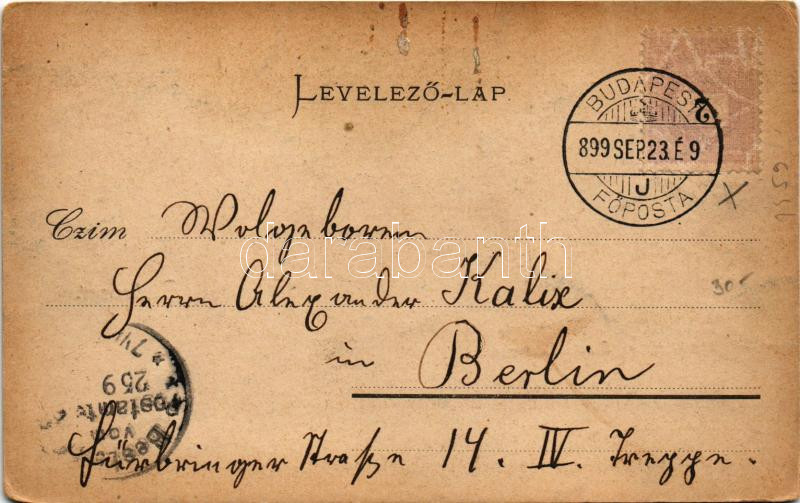 LEVELEZŐ-LAP
BUDAPEST
899 SEP.23.É 9
J
FŐPOSTA
Czim Wolgeboren
darabanth
Herrn Alexander Kalix
in Berlin
Fürbringer Straße 14. IV. Treppe.
Bestellt
vom
Postamte
25 9